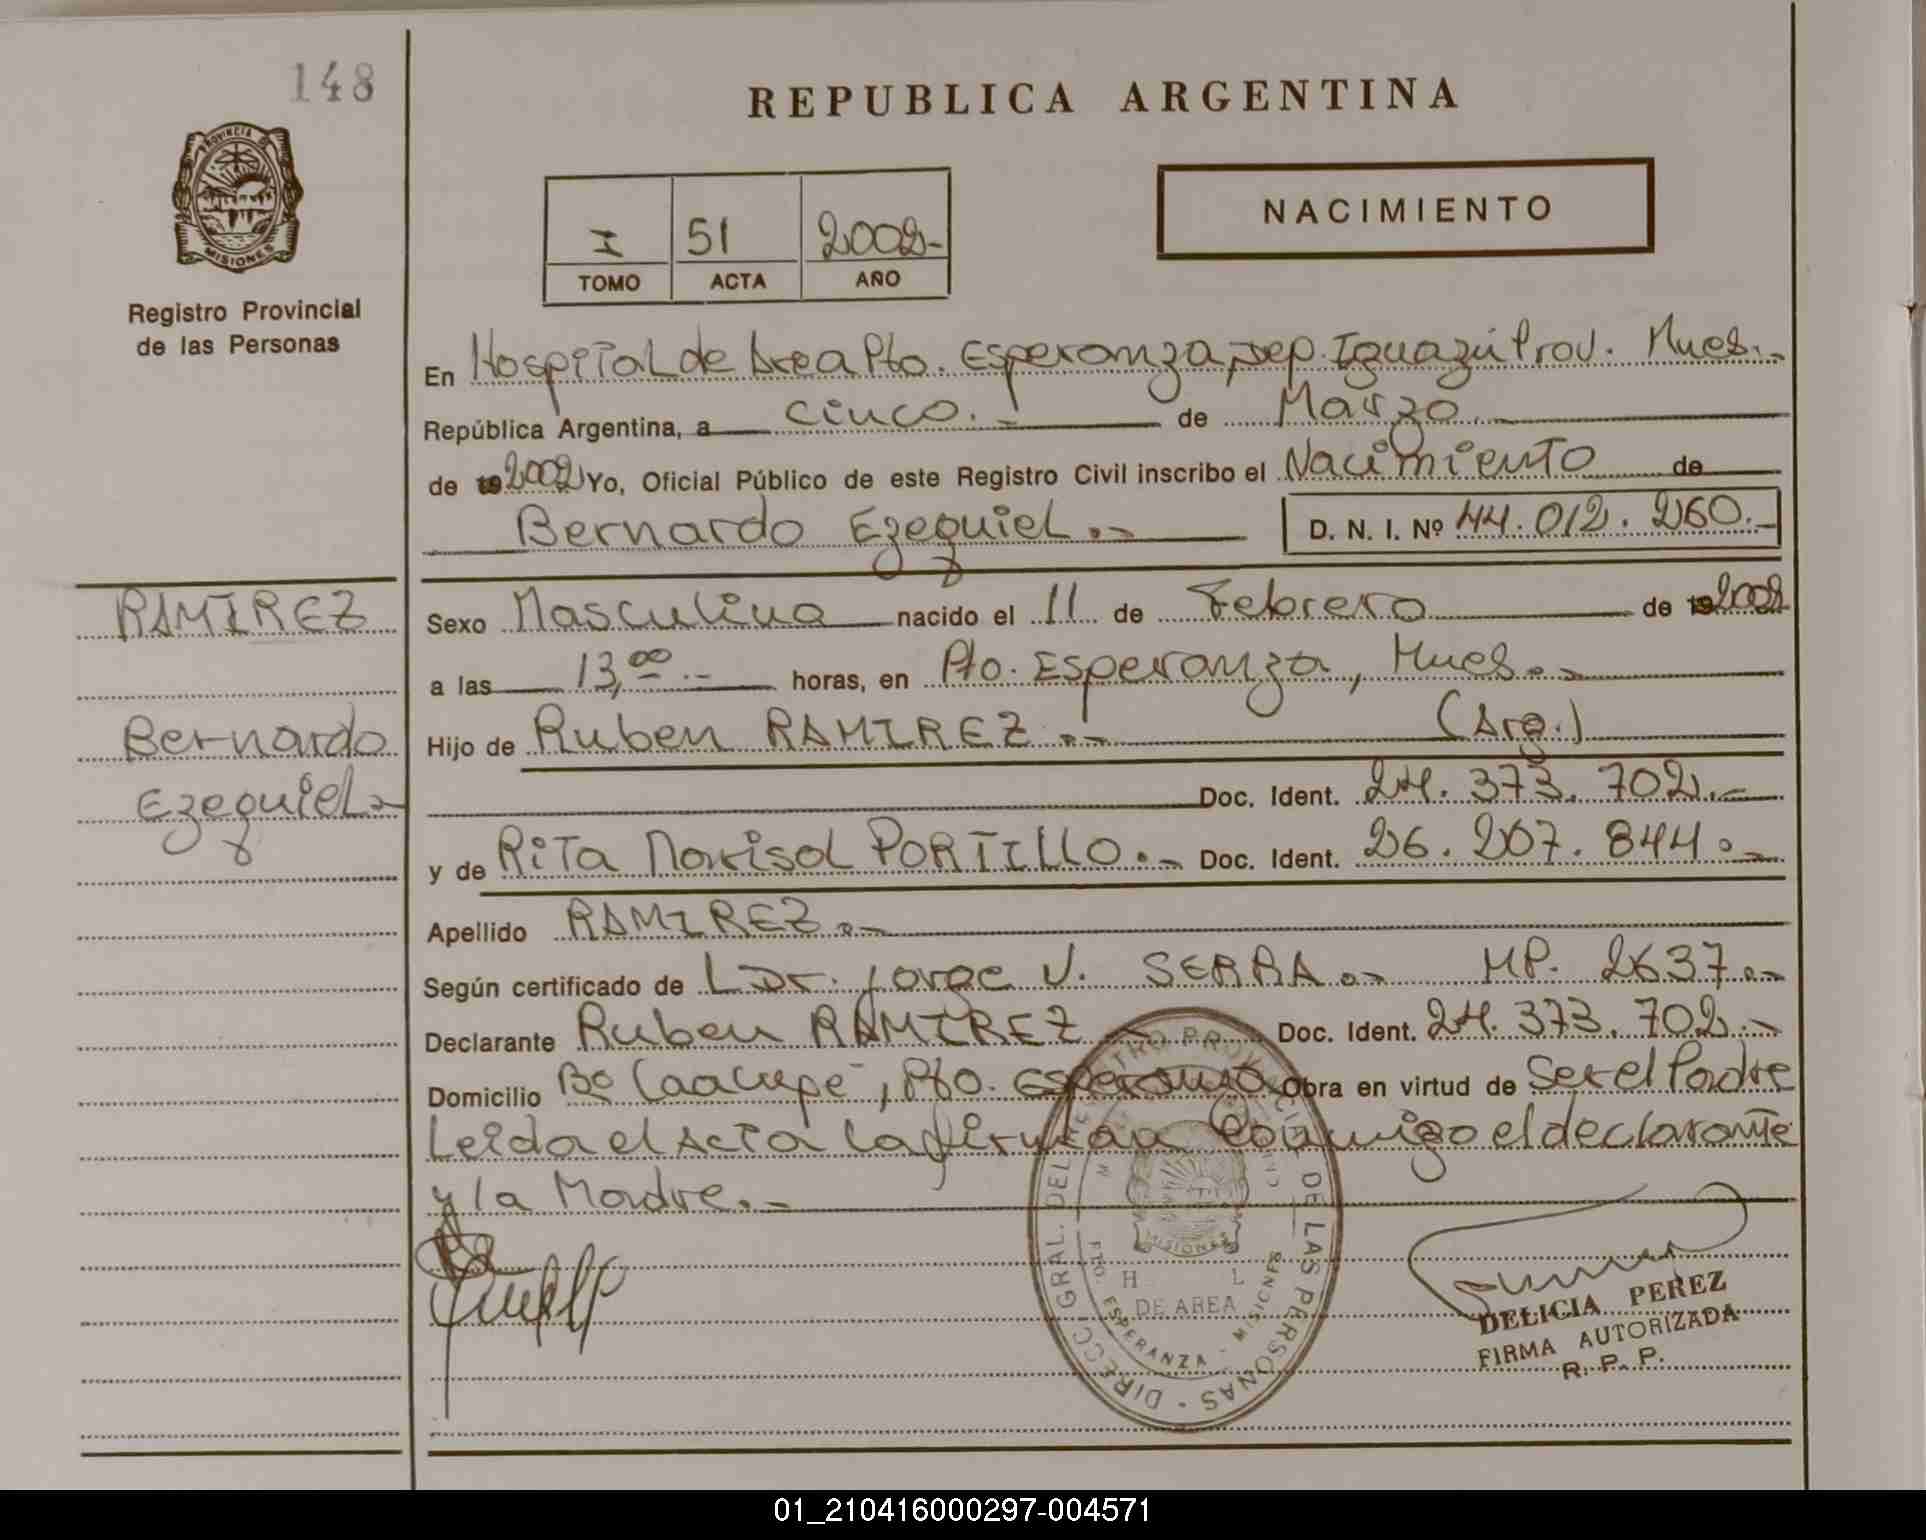 148
REPUBLICA ARGENTINA
PROVINCIA DE MISIONES
Registro Provincial
de las Personas
I 51 2002-
TOMO ACTA AÑO
NACIMIENTO
En Hospital de Area Pto. Esperanza, Dep. Iguazú Prov. Mnes.-
República Argentina, a cinco.- de Marzo.-
de 19 2002 Yo, Oficial Público de este Registro Civil inscribo el Nacimiento de
Bernardo Ezequiel.- D. N. I. Nº 44.012.260.-
RAMIREZ
Bernardo
Ezequiel.-
Sexo Masculino nacido el 11 de Febrero de 19 2002
a las 13,00.- horas, en Pto. Esperanza, Mnes.-
Hijo de Ruben RAMIREZ.- (Arg.)
Doc. Ident. 24.373.702.-
y de Rita Marisol PORTILLO.- Doc. Ident. 26.207.844.-
Apellido RAMIREZ.-
Según certificado de L Dr. Jorge V. SERRA.- MP. 2637.-
Declarante Ruben RAMIREZ.- Doc. Ident. 24.373.702.-
Domicilio Bº Caacupé, Pto. Esperanza Obra en virtud de Ser el Padre
Leida el Acta la firman Conmigo el declarante
y la Madre.-
DIRECC. GRAL. DEL REGISTRO PROVINCIAL DE LAS PERSONAS
MISIONES
H L
DE AREA
PTO. ESPERANZA - MISIONES
DELICIA PEREZ
FIRMA AUTORIZADA
R. P. P.
01_210416000297-004571